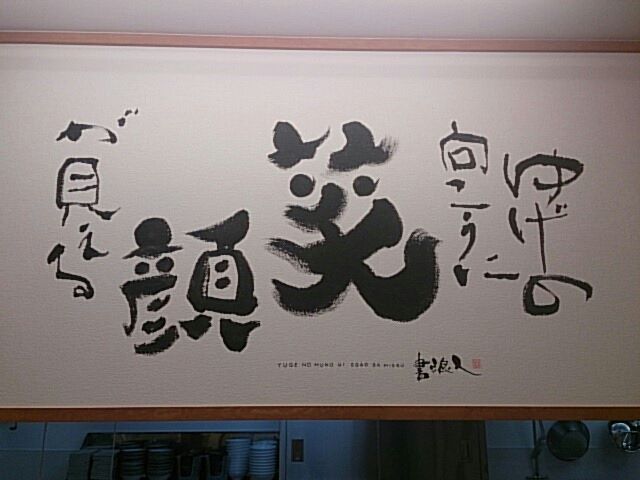 ゆげの
向こうに
笑
顔
が見える
YUGE NO MUKO NI EGAO GA MIERU
書浪人